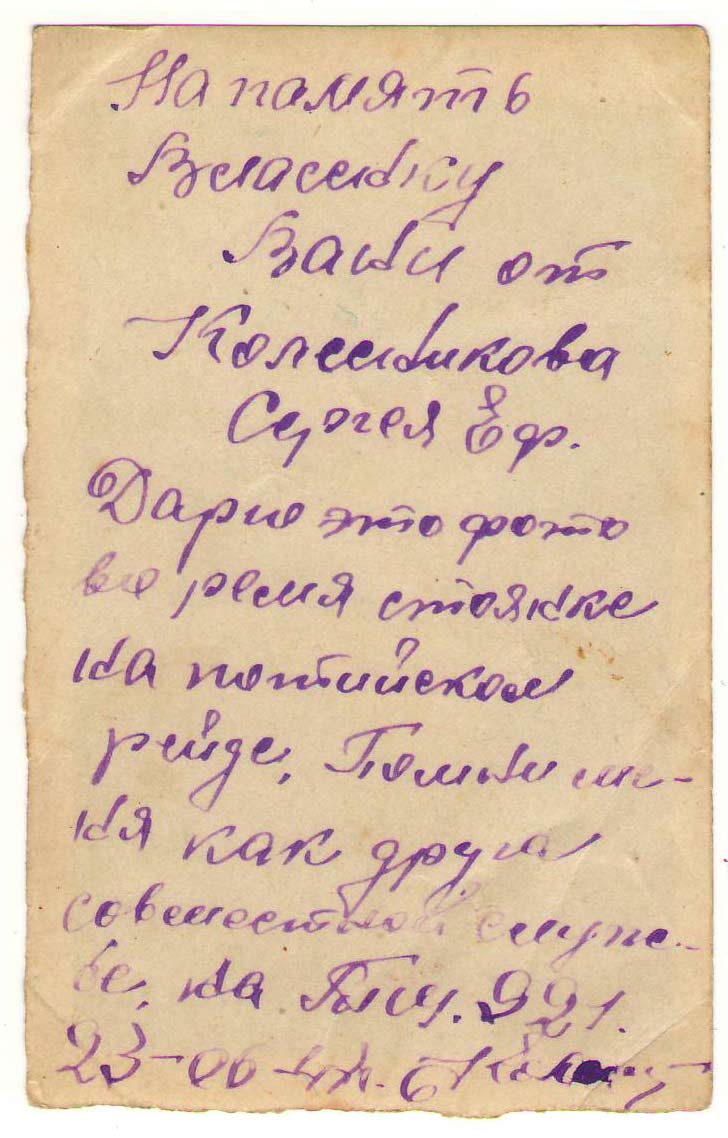 На память
Власенку
Вани от
Колесникова
Сергея Еф.
Дарю это фото
во ремя стоянке
на потийском
рейде, Помни ме-
ня как друга
совместной служ-
бе, на 921.
23-06-